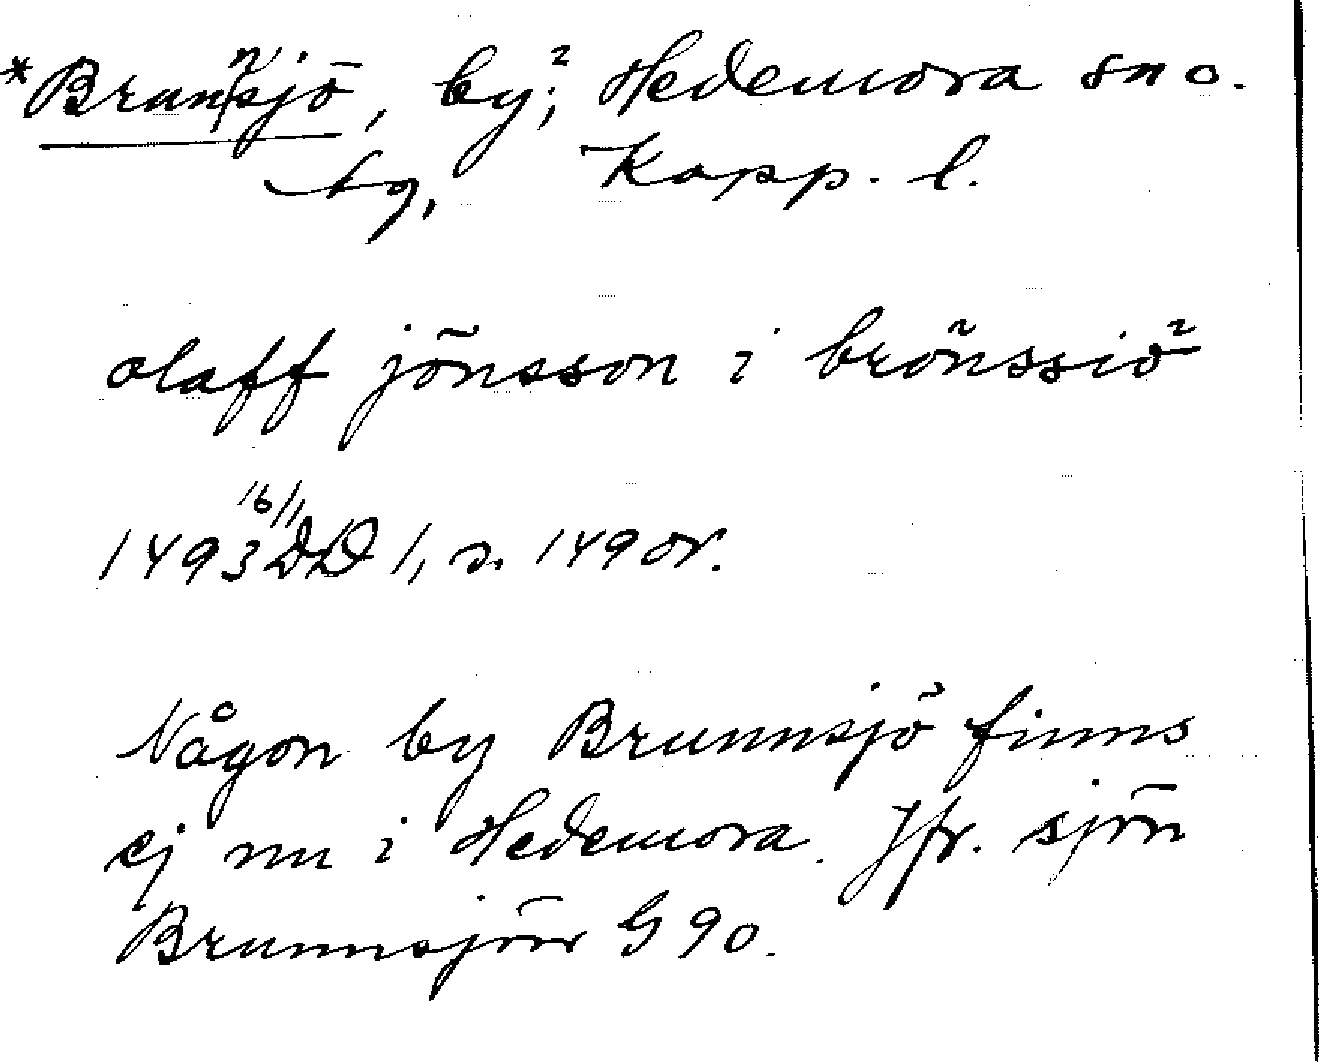 *Brunnsjö, by, Hedemora sn o.
tg, Kopp. l.
olaff jönsson i brönssiö
1493 16/11 DD 1, s. 149 or.
Någon by Brunnsjö finns
ej nu i Hedemora. Jfr. sjön
Brunnsjön G 90.